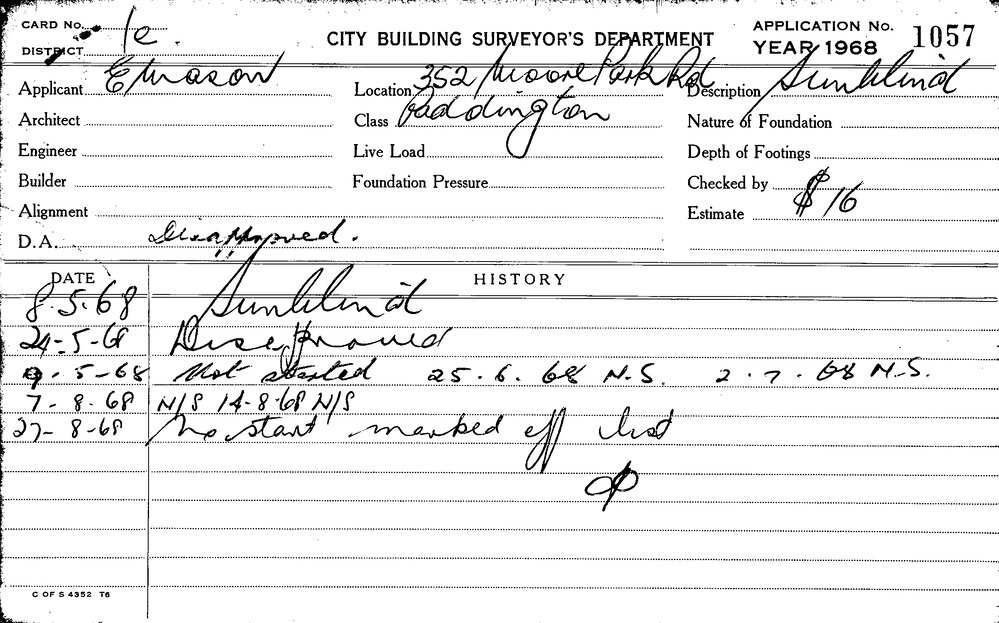 CARD No. 1c.
CITY BUILDING SURVEYOR'S DEPARTMENT
APPLICATION No. 1057
DISTRICT
YEAR 1968
Applicant E Mason Location 352 Moore Park Rd Description Sunblind
Architect Class Paddington Nature of Foundation
Engineer Live Load Depth of Footings
Builder Foundation Pressure Checked by
Alignment Estimate $16
D.A. Disapproved.
DATE HISTORY
8.5.68 Sunblind
24-5-68 Disapproved
9.5-68 Not started 25.6.68 N.S. 2.7.68 N.S.
7-8-68 N/S 14-8-68 N/S
27-8-68 No start marked off list
C OF S 4352 T6